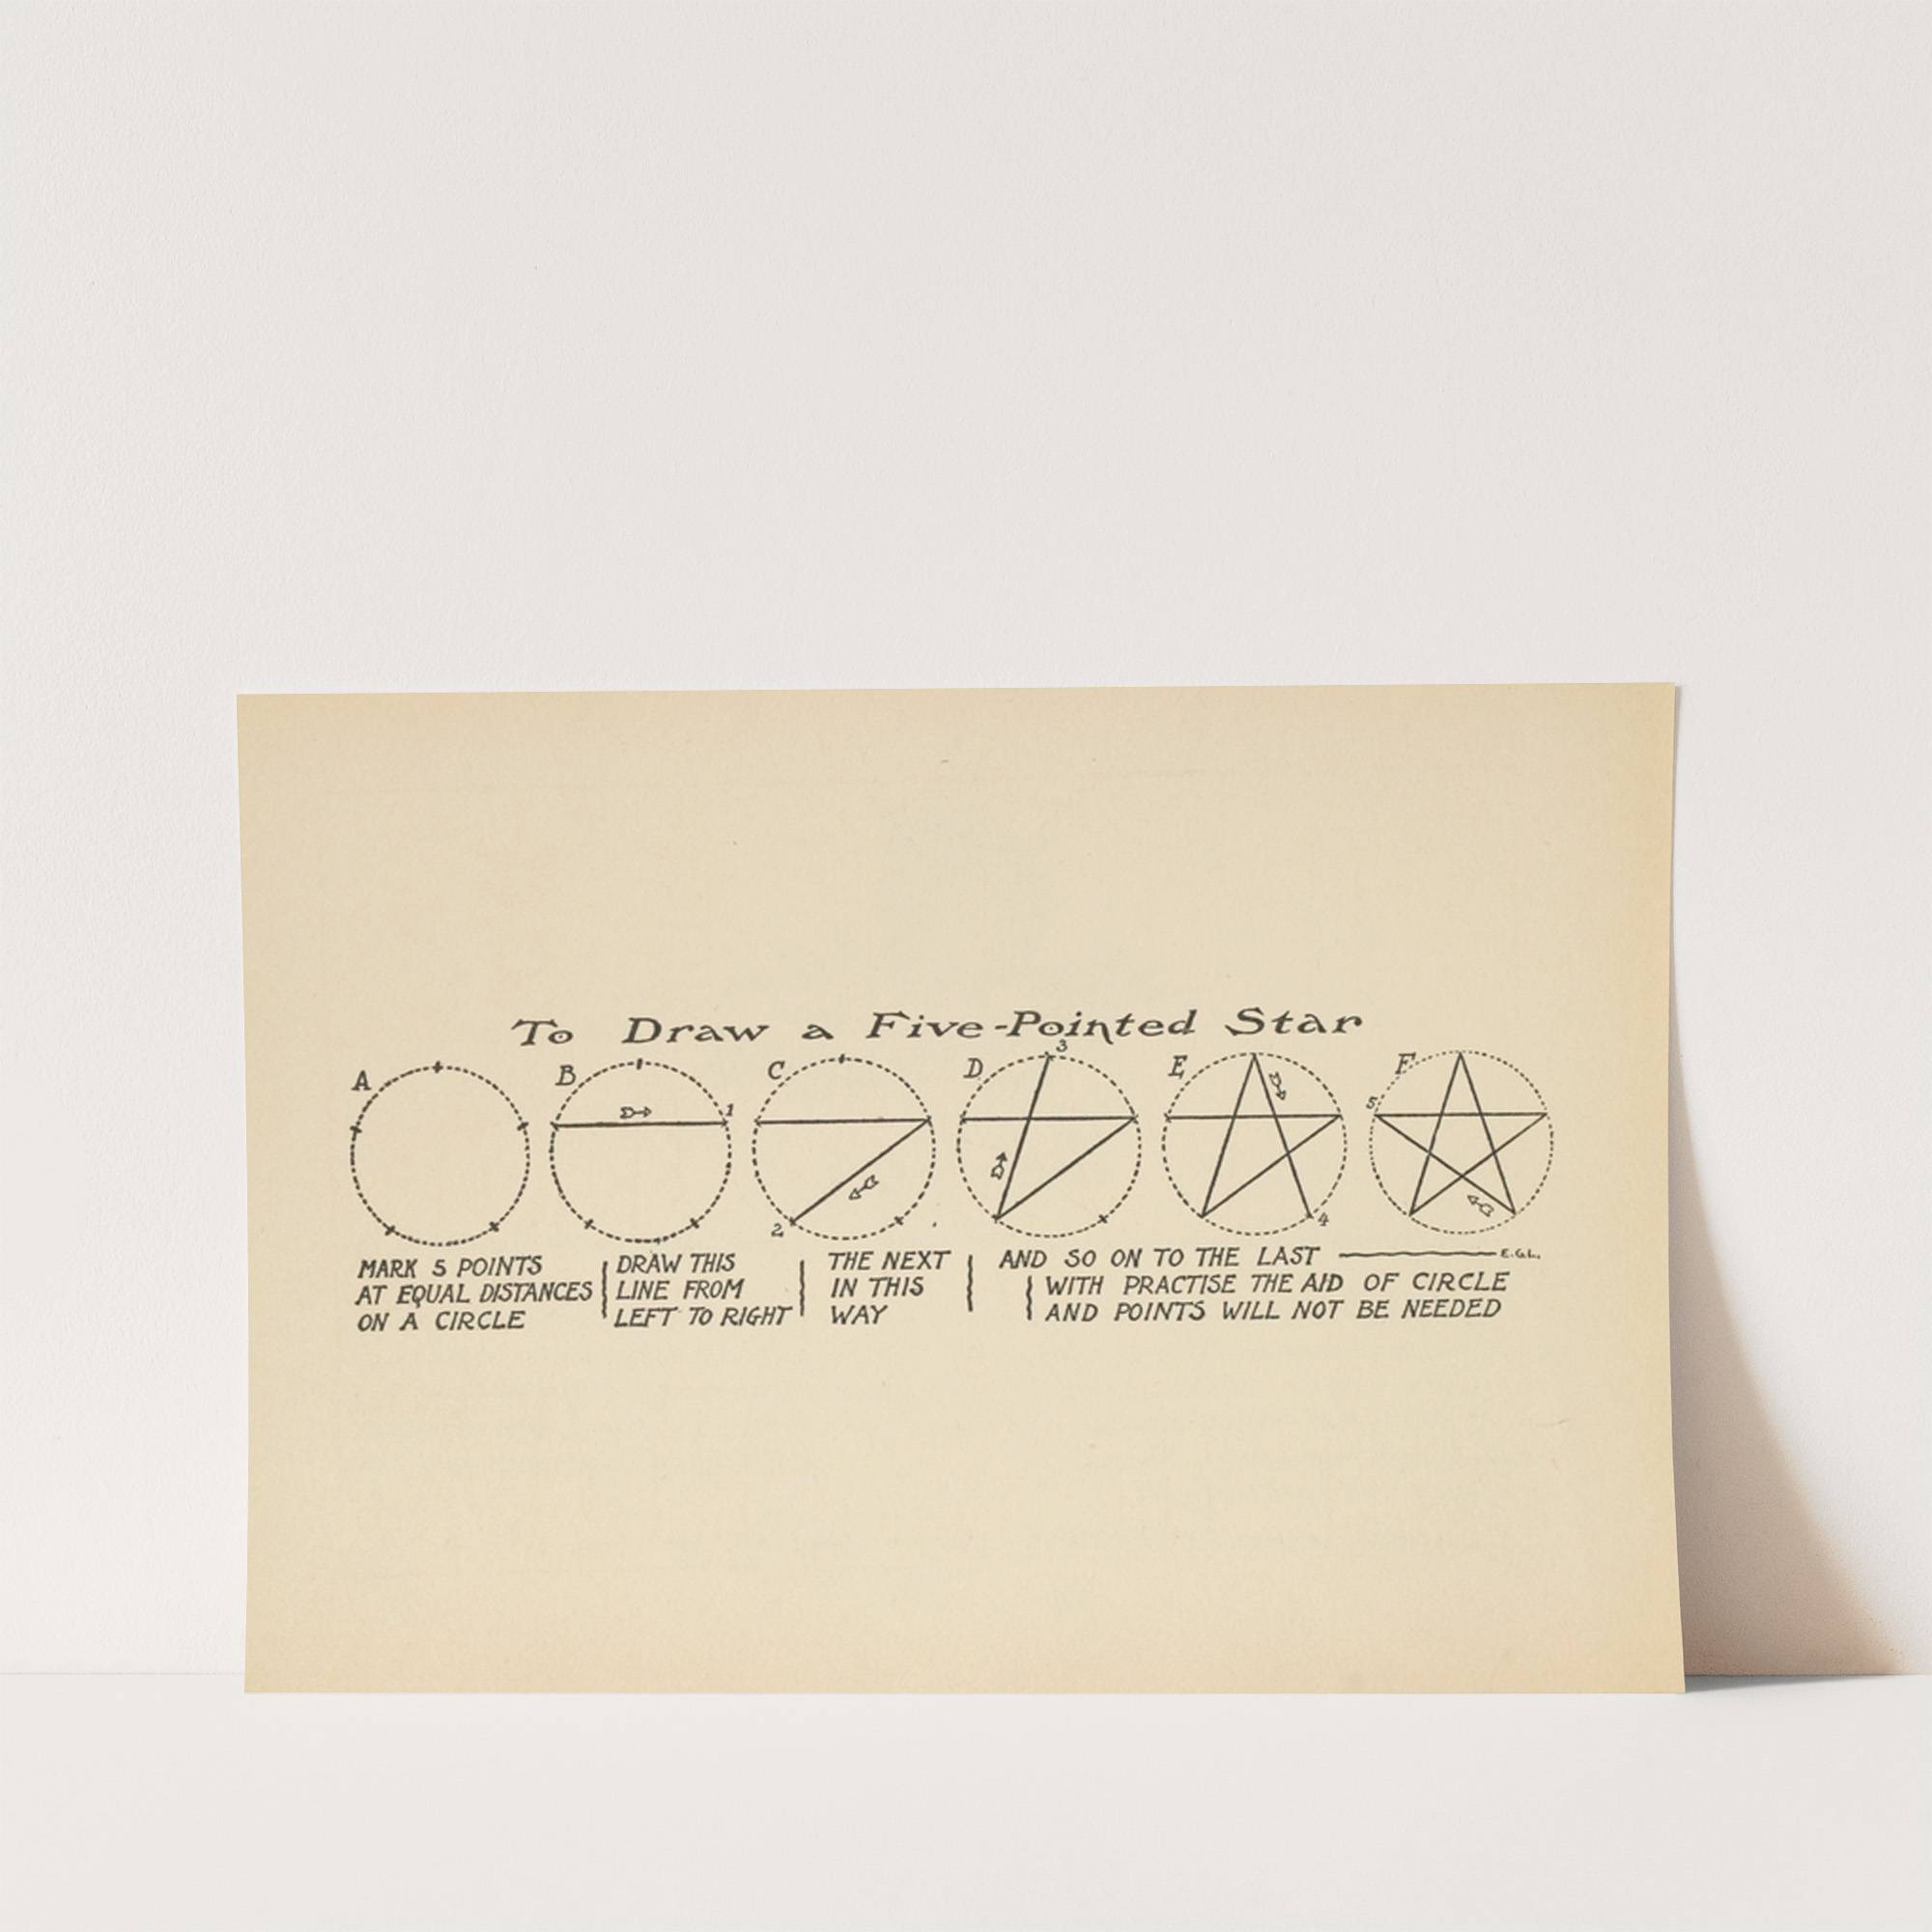 To Draw a Five-Pointed Star
A B C D E F
1 2 3 4 5
MARK 5 POINTS
AT EQUAL DISTANCES
ON A CIRCLE
DRAW THIS
LINE FROM
LEFT TO RIGHT
THE NEXT
IN THIS
WAY
AND SO ON TO THE LAST E.G.L.
WITH PRACTISE THE AID OF CIRCLE
AND POINTS WILL NOT BE NEEDED